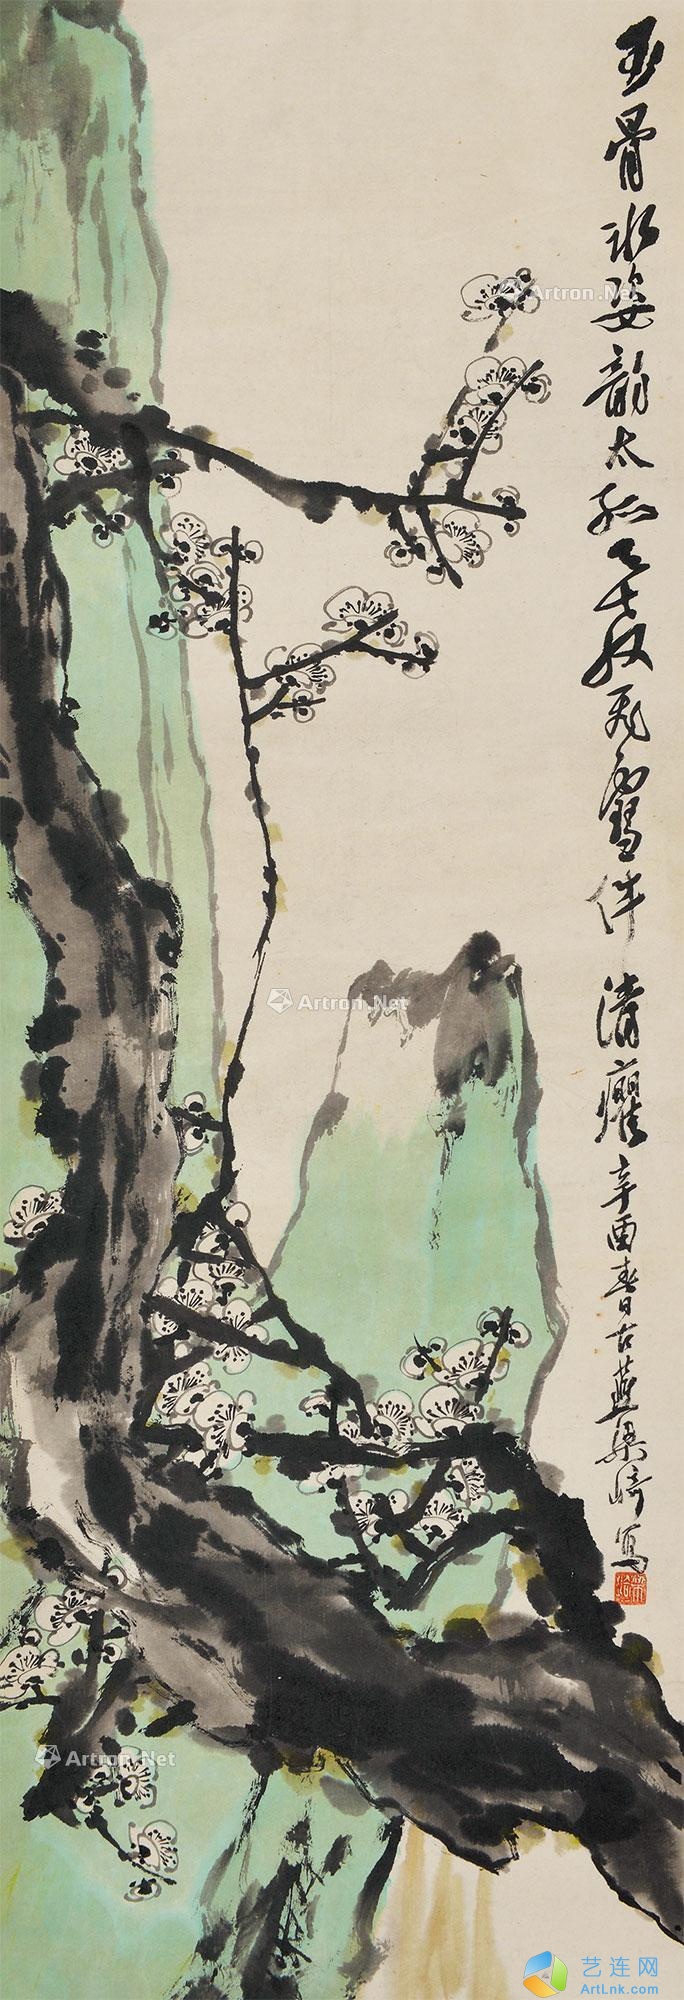 玉骨冰姿韵太孤天教飛雪伴清癯辛酉春古燕梁崎寫
Artron.Net
Artron.Net
Artron.Net
艺连网
ArtLnk.com